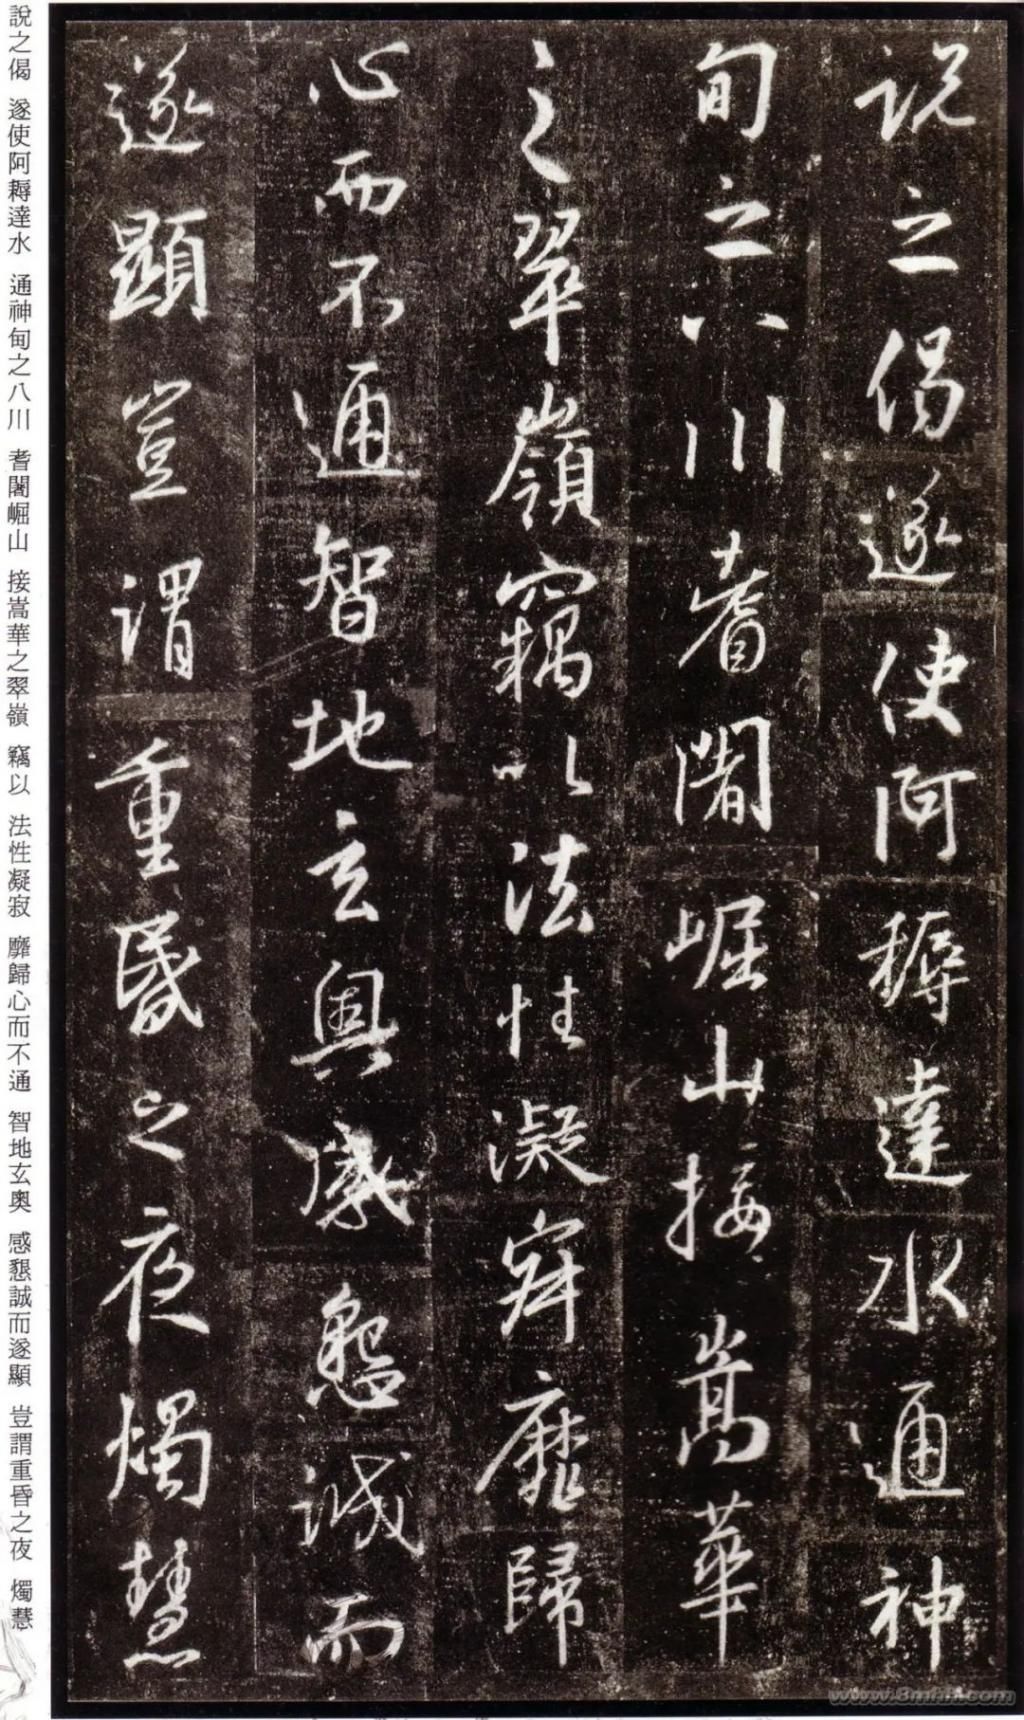 説之偈遂使阿耨達水通神
甸之八川耆闍崛山接嵩華
之翠嶺竊以法性凝寂靡歸
心而不通智地玄奧感懇誠而
遂顯豈謂重昏之夜燭慧
說之偈 遂使阿耨達水 通神甸之八川 耆闍崛山 接嵩華之翠嶺 竊以 法性凝寂 靡歸心而不通 智地玄奧 感懇誠而遂顯 豈謂重昏之夜 燭慧